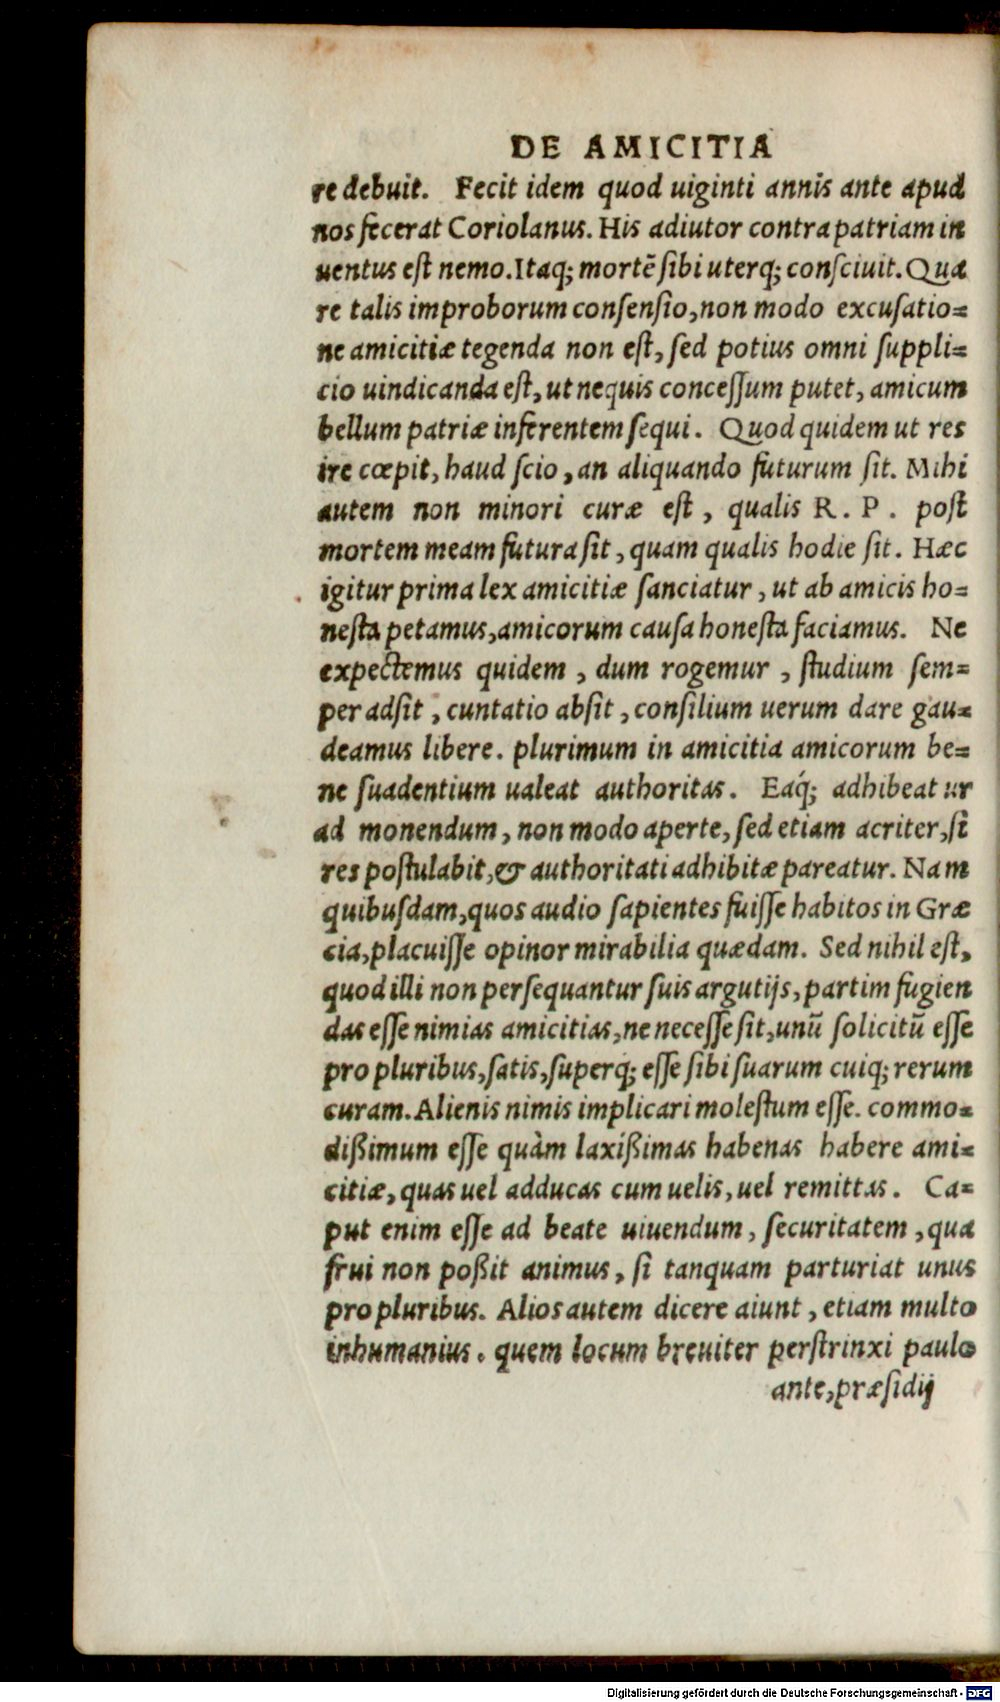 DE AMICITIA
re debuit. Fecit idem quod uiginti annis ante apud
nos fecerat Coriolanus. His adiutor contra patriam in
uentus eſt nemo. Itaq; mortẽ ſibi uterq; conſciuit. Qua
re talis improborum conſenſio, non modo excuſatio=
ne amicitiæ tegenda non eſt, ſed potius omni ſuppli=
cio uindicanda eſt, ut nequis conceſſum putet, amicum
bellum patriæ inferentem ſequi. Quod quidem ut res
ire cœpit, haud ſcio, an aliquando futurum ſit. Mihi
autem non minori curæ eſt, qualis R. P. poſt
mortem meam futura ſit, quam qualis hodie ſit. Hæc
igitur prima lex amicitiæ ſanciatur, ut ab amicis ho=
neſta petamus, amicorum cauſa honeſta faciamus. Ne
expectemus quidem, dum rogemur, ſtudium ſem=
per adſit, cuntatio abſit, conſilium uerum dare gau=
deamus libere. plurimum in amicitia amicorum be=
ne ſuadentium ualeat authoritas. Eaq́; adhibeatur
ad monendum, non modo aperte, ſed etiam acriter, ſi
res poſtulabit, & authoritati adhibitæ pareatur. Nam
quibuſdam, quos audio ſapientes fuiſſe habitos in Græ
cia, placuiſſe opinor mirabilia quædam. Sed nihil eſt,
quod illi non perſequantur ſuis argutijs, partim fugien
das eſſe nimias amicitias, ne neceſſe ſit, unũ ſolicitũ eſſe
pro pluribus, ſatis, ſuperq́; eſſe ſibi ſuarum cuiq; rerum
curam. Alienis nimis implicari moleſtum eſſe. commo=
dißimum eſſe quàm laxißimas habenas habere ami=
citiæ, quas uel adducas cum uelis, uel remittas. Ca=
put enim eſſe ad beate uiuendum, ſecuritatem, qua
frui non poßit animus, ſi tanquam parturiat unus
pro pluribus. Alios autem dicere aiunt, etiam multo
inhumanius. quem locum breuiter perſtrinxi paulo
ante, præſidij
Digitalisierung gefördert durch die Deutsche Forschungsgemeinschaft - DFG